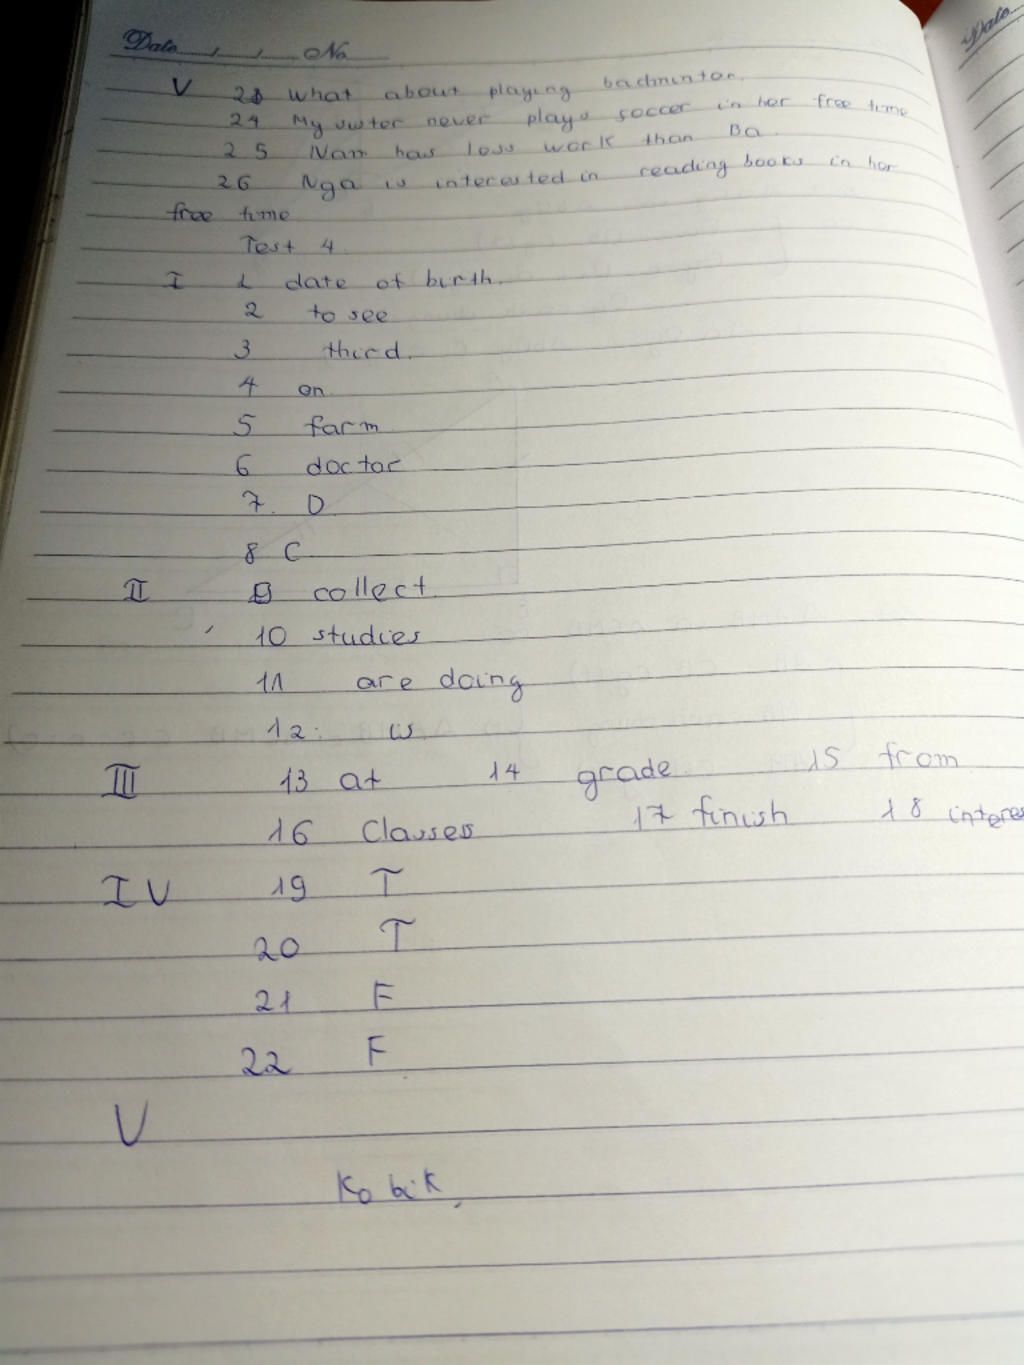 Date No
Date
V 23 What about playing badminton.
24 My sister never plays soccer in her free time
25 Nam has less work than Ba.
26 Nga is interested in reading books in her
free time
Test 4
I 1 date of birth.
2 to see
3 third.
4 on
5 farm
6 doctor
7. D
8 C
II 9 collect
10 studies
11 are doing
12: is
III 13 at 14 grade 15 from
16 Classes 17 finish 18 interes
IV 19 T
20 T
21 F
22 F
V
Ko bik,